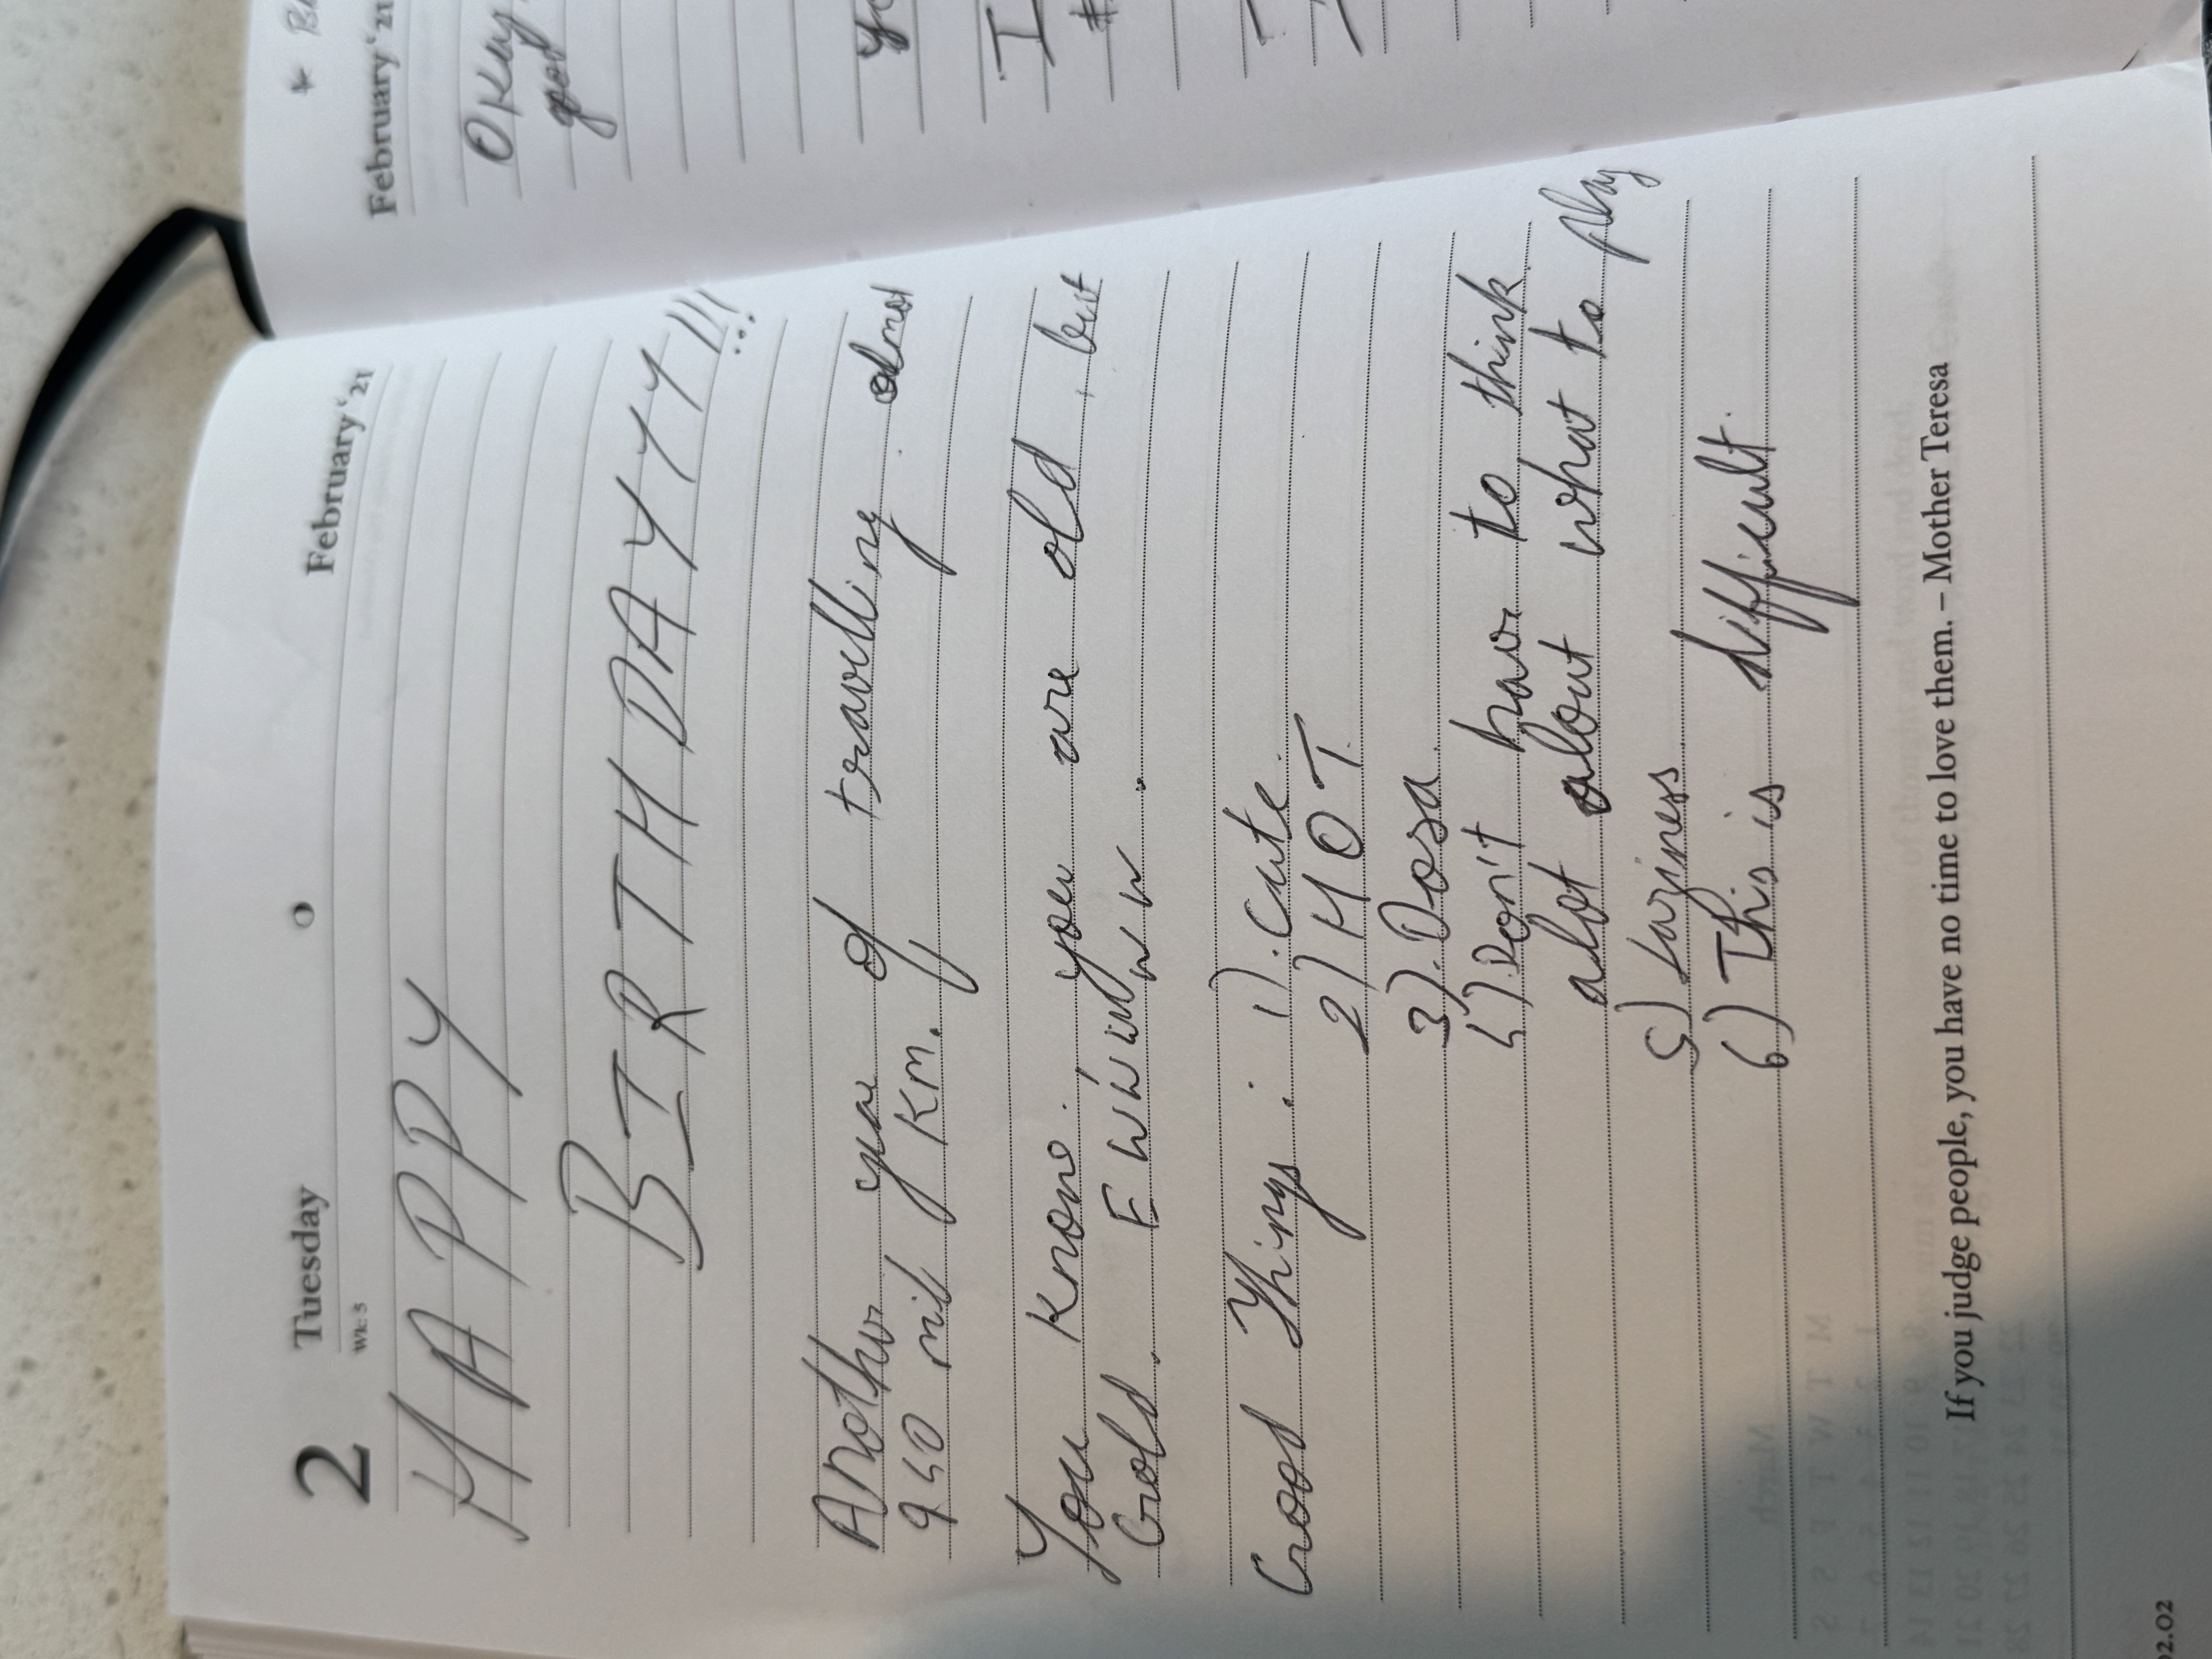 2 Tuesday February '21
Wk: 5
HAPPY
BIRTHDAYYY!!!
Another year of travelling almost
940 mil KM.
You know, you are old, but
Gold. EWWWWW.
Good Things: 1). Cute.
2) HOT.
3). Dosa.
4) Don't have to think
alot about what to play
5) Laziness.
6) This is difficult.
If you judge people, you have no time to love them. – Mother Teresa
02.02
February '21
Okay
good
I